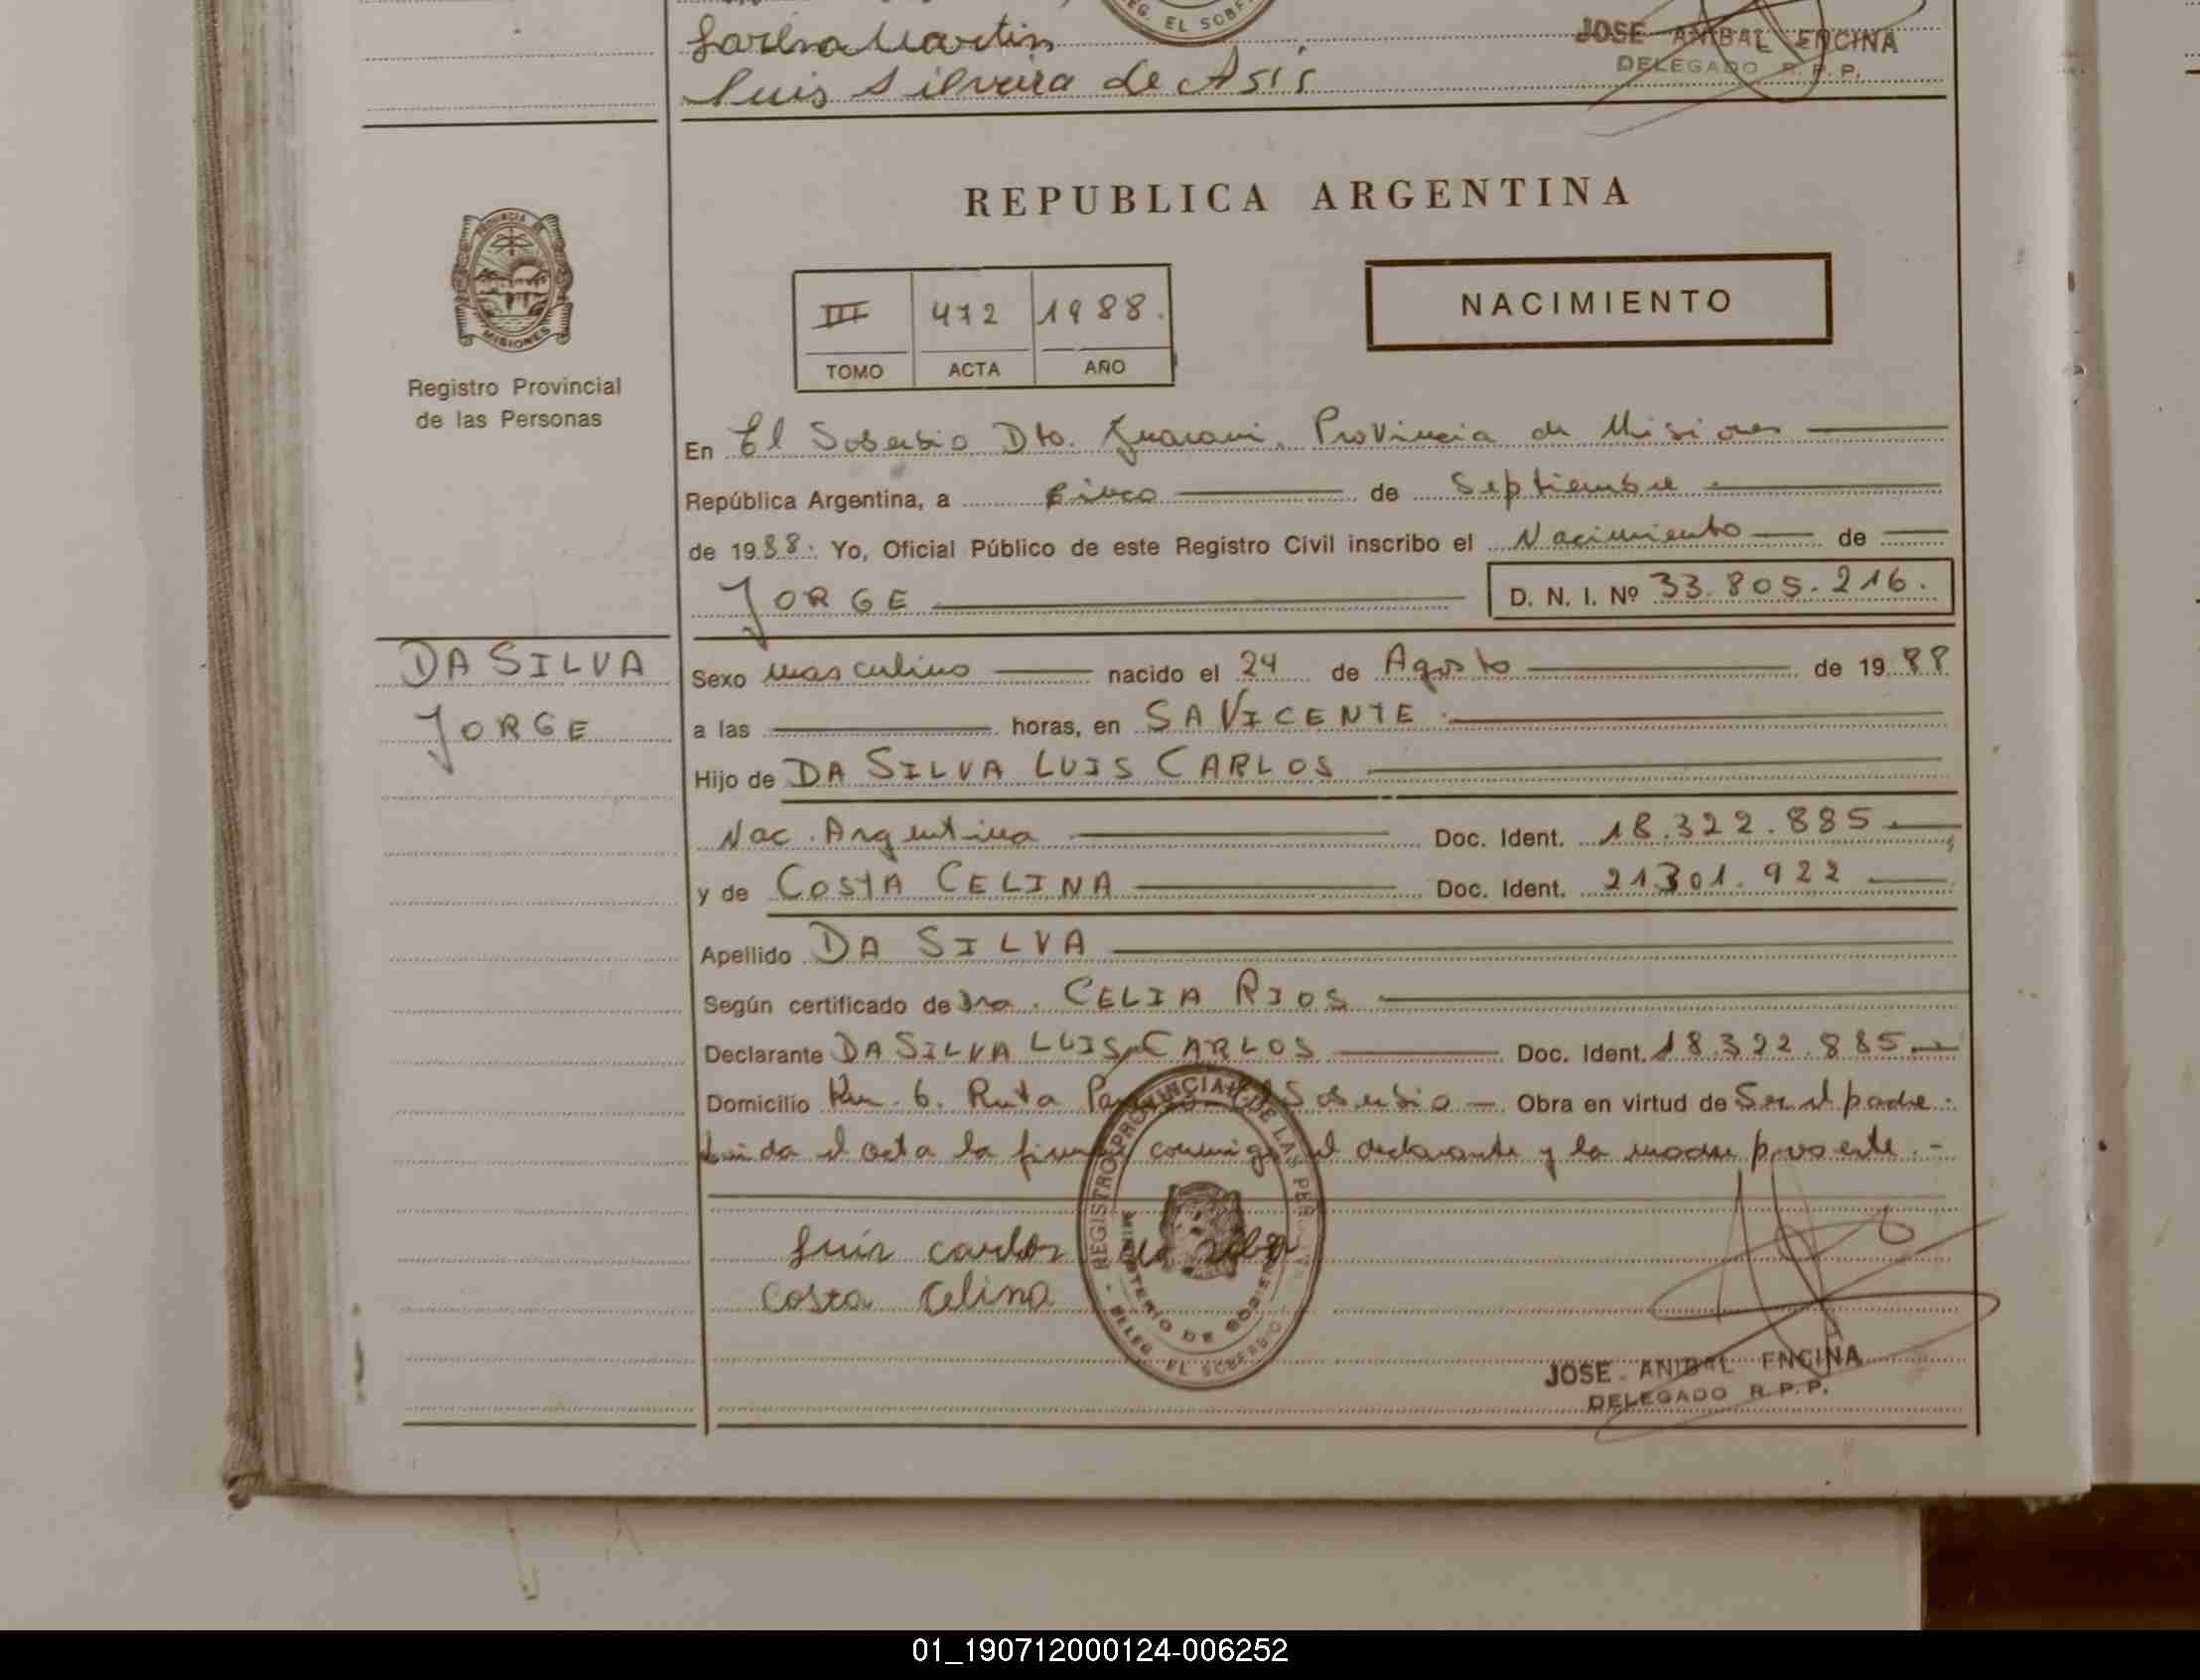 REG. EL SOBE
Luis Silveira de Asis
JOSE ANIBAL ENCINA
DELEGADO R. P. P.
REPUBLICA ARGENTINA
PROVINCIA DE
MISIONES
Registro Provincial
de las Personas
III 472 1988.
TOMO ACTA AÑO
NACIMIENTO
En El Soberbio Dto. Guarani. Provincia de Misiones
República Argentina, a cinco de Septiembre
de 1988. Yo, Oficial Público de este Registro Civil inscribo el Nacimiento de
JORGE D. N. I. Nº 33.805.216.
DA SILVA
JORGE
Sexo masculino nacido el 24 de Agosto de 1988
a las horas, en SA VICENTE
Hijo de DA SILVA LUIS CARLOS
Nac. Argentina Doc. Ident. 18.322.885
y de COSTA CELINA Doc. Ident. 21.301.922
Apellido DA SILVA
Según certificado de Dra. CELIA RIOS
Declarante DA SILVA LUIS CARLOS Doc. Ident. 18.322.885
Domicilio Km. 6. Ruta Soberbio — Obra en virtud de Ser el padre.
Leida el acta la firma conmigo el declarante y la madre presente. -
REGISTRO PROVINCIAL DE LAS PER
MINISTERIO DE GOBIERNO
DELEG. EL SOBERBIO
Luis carlos da silva
Costa Celina
JOSE ANIBAL ENCINA
DELEGADO R. P. P.
01_190712000124-006252